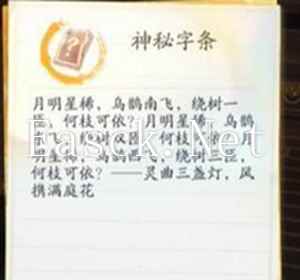 神秘字条
月明星稀，乌鹊南飞，绕树一
匝，何枝可依？月明星稀，乌鹊
东飞，绕树双匝，何枝可依？月
明星稀，乌鹊西飞，绕树三匝，
何枝可依？——灵曲三盏灯，风
携满庭花